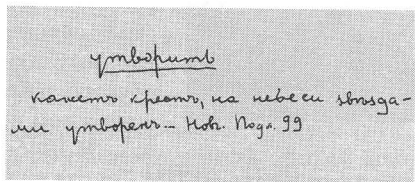 утворить
кажетъ крестъ, на небеси звѣзда-
ми утворенъ — Новг. Подл. 99